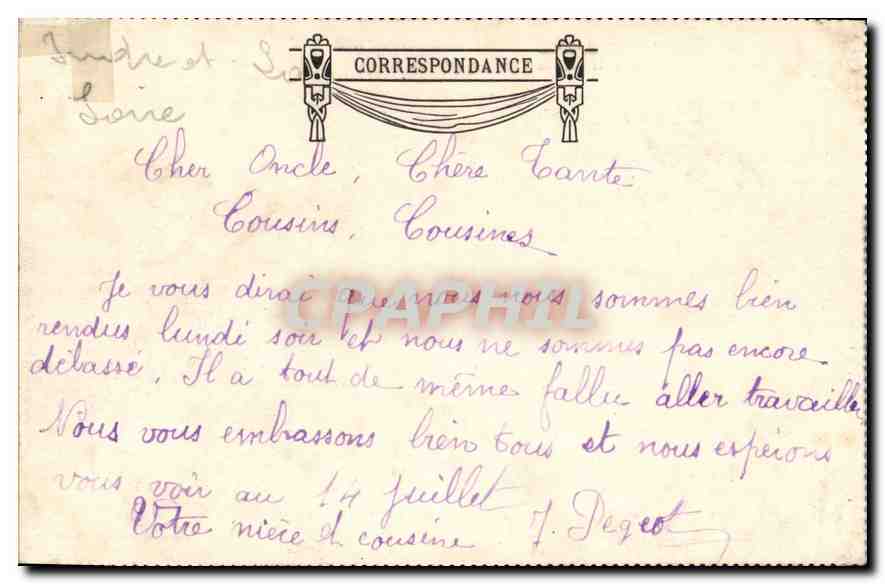 Indre et
Loire
CORRESPONDANCE
Cher Oncle, Chère Tante
Cousins, Cousines
Je vous dirai que nous nous sommes bien
rendus lundi soir et nous ne sommes pas encore
délassé. Il a tout de même fallu aller travailler
Nous vous embrassons bien tous et nous espérons
vous voir au 14 juillet
Votre nièce et cousine J. Pegeot
CPAPHIL